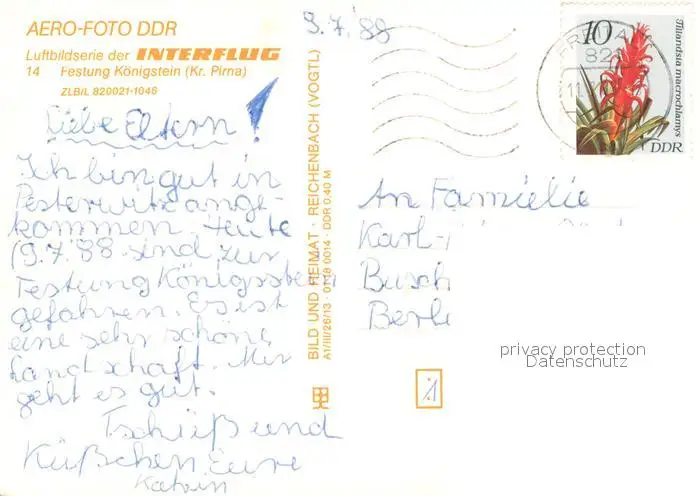 AERO-FOTO DDR
Luftbildserie der INTERFLUG
14 Festung Königstein (Kr. Pirna)
ZLB/L 820021-1046
9.7.'88
Liebe Eltern!
Ich bin gut in
Pesterwitz ange-
kommen. Heute
(9.7.'88 sind zur
Festung Königsstein
gefahren. Es ist
eine sehr schöne
Landschaft. Mir
geht es gut.
Tschüß und
Küßchen Eure
Katrin
BILD UND HEIMAT · REICHENBACH (VOGTL)
A1/III/26/13 · 0014 · DDR 0,40 M
10
Tillandsia macrochlamys
DDR
FREITAL
An Familie
Karl-
Busch
Berli
privacy protection
Datenschutz